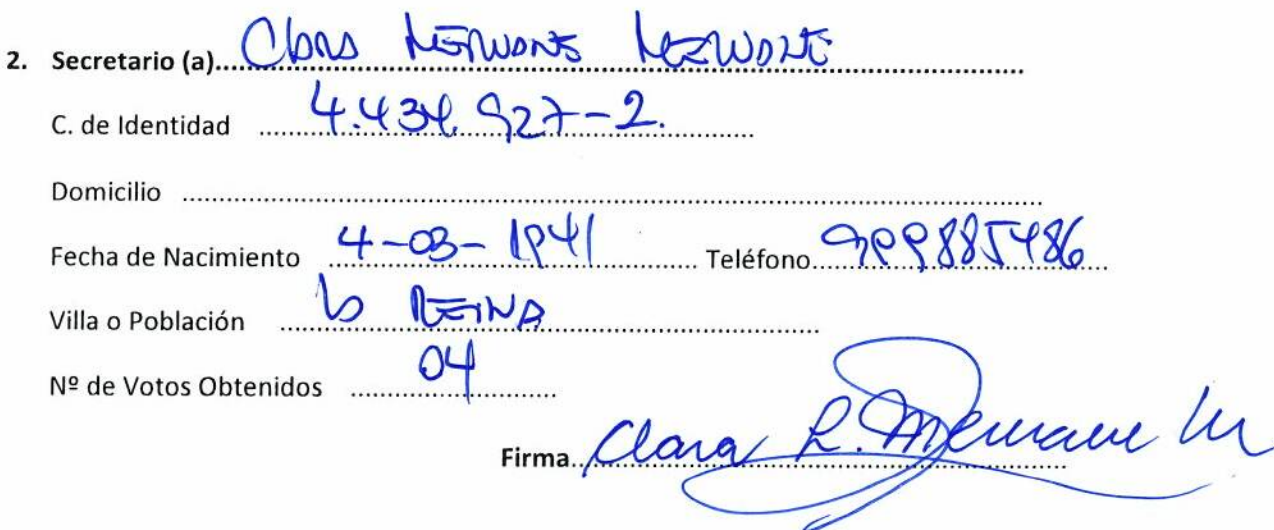 2. Secretario (a) Clara
C. de Identidad 4.434.927-2.
Domicilio
Fecha de Nacimiento 4-03-1941 Teléfono 999885486
Villa o Población la REINA
Nº de Votos Obtenidos 04
Firma Clara L.